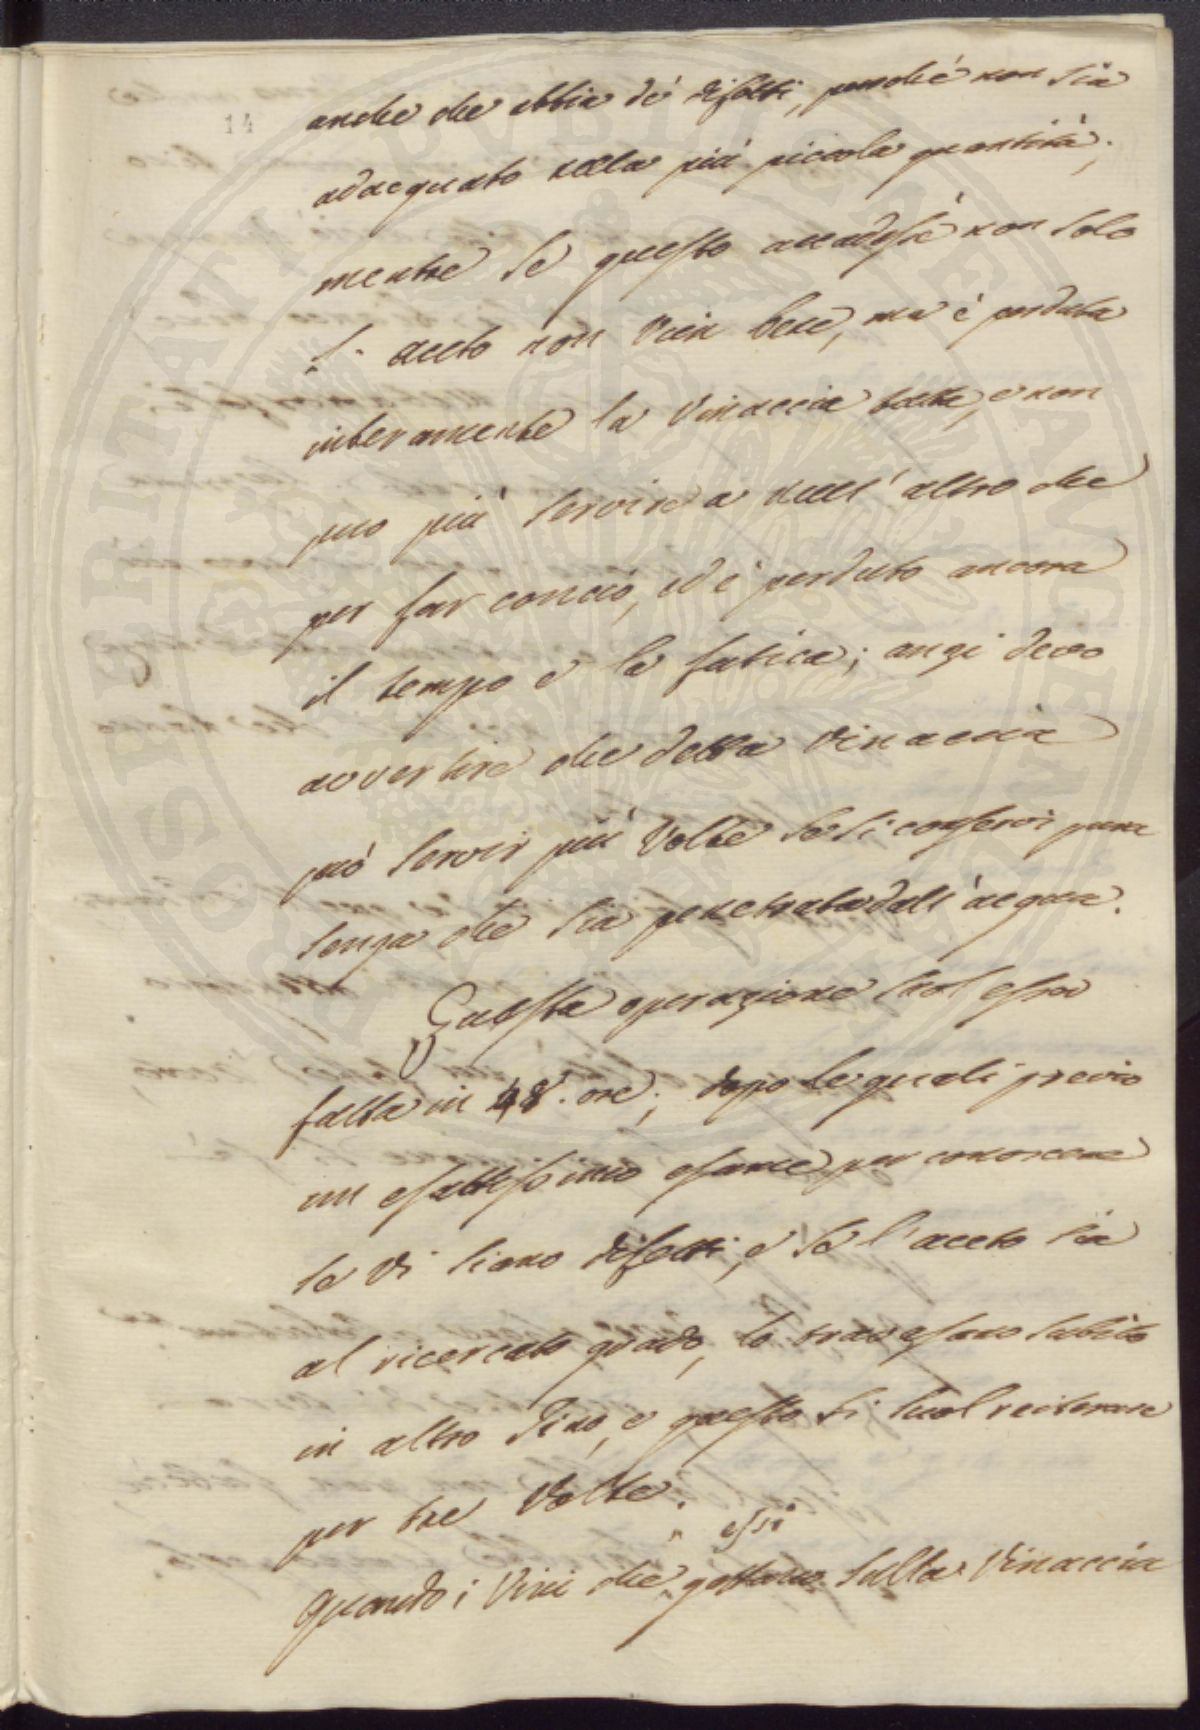 14
anche che abbia de' difetti, purchè non sia
adacquato nella più piccola quantità;
mentre se questo accadesse non solo
l'aceto non vien bene, ma è perduta
interamente la Vinaccia tutta, e non
può più servire a null'altro che
per far concio, ed è perduto ancora
il tempo e la fatica; anzi devo
avvertire che detta Vinaccia
può servir più Volte se si conservi pura
senza che sia penetrata dall'acqua.
Questa operazione suol esser
fatta in 48. ore; dopo le quali previo
un esattessimo esame per conoscere
se vi siano difetti, e se l'aceto sia
al ricercato grado, lo travesano subito
in altro Tino, e questo si suol reiterare
per tre Volte.
essi
Quando i Vini che gettano sulla Vinaccia
PROSPERITATI PVBLICAE AVGENDAE